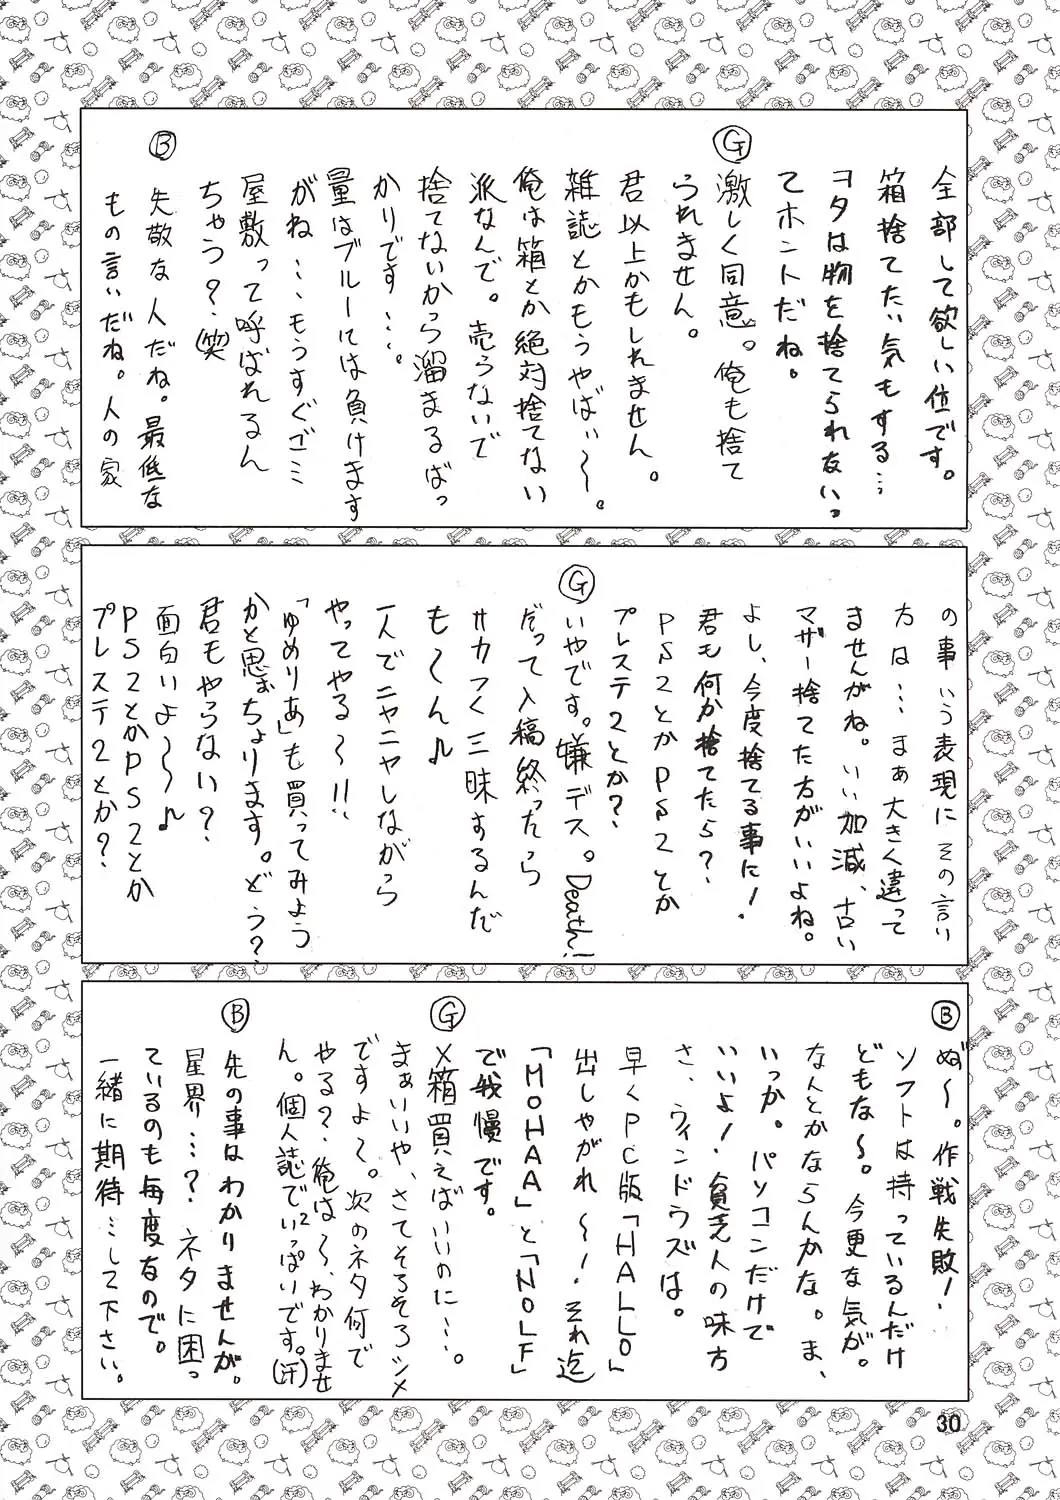 全部して欲しい位です。
箱捨てたい気もする…
ヲタは物を捨てられないっ
てホントだね。
Ⓖ
激しく同意。俺も捨て
られません。
君以上かもしれません。
雑誌とかもうやばい〜。
俺は箱とか絶対捨てない
派なんで。売らないで
捨てないから溜まるばっ
かりです…。
量はブルーには負けます
がね…もうすぐゴミ
屋敷って呼ばれるん
ちゃう?(笑)
Ⓑ
失敬な人だね。最低な
もの言いだね。人の家
の事いう表現にその言い
方は…まぁ大きく違って
ませんがね。いい加減、古い
マザー捨てた方がいいよね。
よし、今度捨てる事に!
君も何か捨てたら?
PS2とかPS2とか
プレステ2とか?
Ⓖ
いやです。嫌デス。Death!
だって入稿終ったら
サカつく三昧するんだ
も〜ん♪
一人でニヤニヤしながら
やってやる〜!!
「ゆめりあ」も買ってみよう
かと思おちょります。どう?
君もやらない?
面白いよ〜〜♪
PS2とかPS2とか
プレステ2とか?
Ⓑ
ぬ〜。作戦失敗!
ソフトは持っているんだけ
どもな〜。今更な気が。
なんとかならんかな。ま、
いっか。パソコンだけで
いいよ!貧乏人の味方
さ、ウィンドウズは。
早くPC版「HALLO」
出しやがれ〜!それ迄
「MOHAA」と「NOLF」
で我慢です。
Ⓖ
×箱買えばいいのに…。
まぁいいや、さてそろそろシメ
ですよ〜。次のネタ何で
やる?俺は〜、わかりませ
ん。個人誌でいっぱいです。(汗)
Ⓑ
先の事はわかりませんが。
星界…?ネタに困っ
ているのも毎度なので。
一緒に期待…して下さい。
30